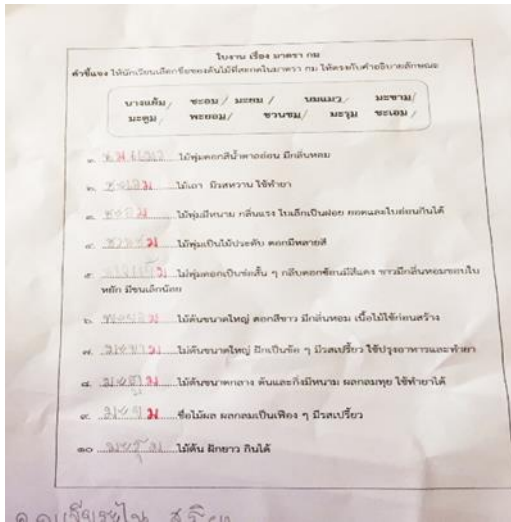 ใบงาน เรื่อง มาตรา กม
คำชี้แจง ให้นักเรียนเลือกชื่อของต้นไม้ที่สะกดในมาตรา กม ให้ตรงกับคำอธิบายลักษณะ
นางแย้ม / ชะอม / มะยม / นมแมว / มะขาม /
มะตูม / พะยอม / ชวนชม / มะรุม ชะเอม /
๑. นมแมว ไม้พุ่มดอกสีน้ำตาลอ่อน มีกลิ่นหอม
๒. ชะเอม ไม้เถา มีรสหวาน ใช้ทำยา
๓. ชะอม ไม้พุ่มมีหนาม กลิ่นแรง ใบเล็กเป็นฝอย ยอดและใบอ่อนกินได้
๔. ชวนชม ไม้พุ่มเป็นไม้ประดับ ดอกมีหลายสี
๕. นางแย้ม ไม้พุ่มดอกเป็นช่อสั้น ๆ กลีบดอกซ้อนมีสีแดง ขาวมีกลิ่นหอมขอบใบ
หยัก มีขนเล็กน้อย
๖. พะยอม ไม้ต้นขนาดใหญ่ ดอกสีขาว มีกลิ่นหอม เนื้อไม้ใช้ก่อนสร้าง
๗. มะขาม ไม้ต้นขนาดใหญ่ ฝักเป็นข้อ ๆ มีรสเปรี้ยว ใช้ปรุงอาหารและทำยา
๘. มะตูม ไม้ต้นขนาดกลาง ต้นและกิ่งมีหนาม ผลกลมทุย ใช้ทำยาได้
๙. มะยม ชื่อไม้ผล ผลกลมเป็นเฟือง ๆ มีรสเปรี้ยว
๑๐ มะรุม ไม้ต้น ฝักยาว กินได้